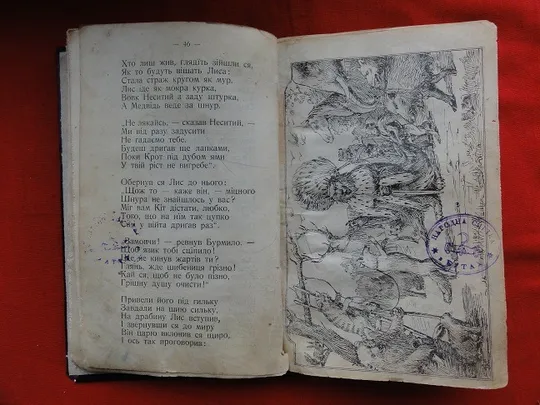 — 46 —
Хто лиш жив, глядіть зійшли ся,
Як то будуть вішать Лиса:
Стала страж кругом як мур.
Лис іде як мокра курка,
Вовк Неситий а заду штурка,
А Медвідь веде за шнур.
„Не лякайсь, — сказав Неситий, —
Ми від разу задусити
Не гадаємо тебе.
Будеш дригав ще лапками,
Поки Крот під дубом ями
У твій ріст не вигребе“.
Обернув ся Лис до нього:
„Щож то — каже він, — міцного
Шнура не знайшлось у вас?
Міг вам Кіт дістати, любко,
Того, що на нім так цупко
Сам у війта дригав раз“.
„Замовчи! — ревнув Бурмило. —
Щоб язик тобі сціпило!
Ще не кинув жартів ти?
Глянь, жде шибениця грізно!
Кай ся, щоб не було пізно,
Грішну душу очисти!“
Привели його під гильку
Завдали на шию сильку,
На драбину Лис вступив,
І звернувши ся до миру
Він царю вклонив ся щиро,
І ось так проговорив:
НАРОДНА